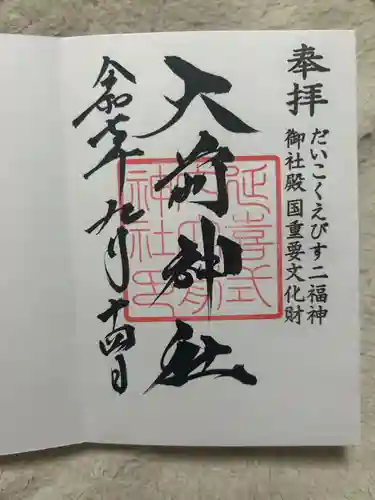 奉拝
だいこくえびす二福神
御社殿 国重要文化財
大前神社
延喜式
神社
令和六年九月十四日